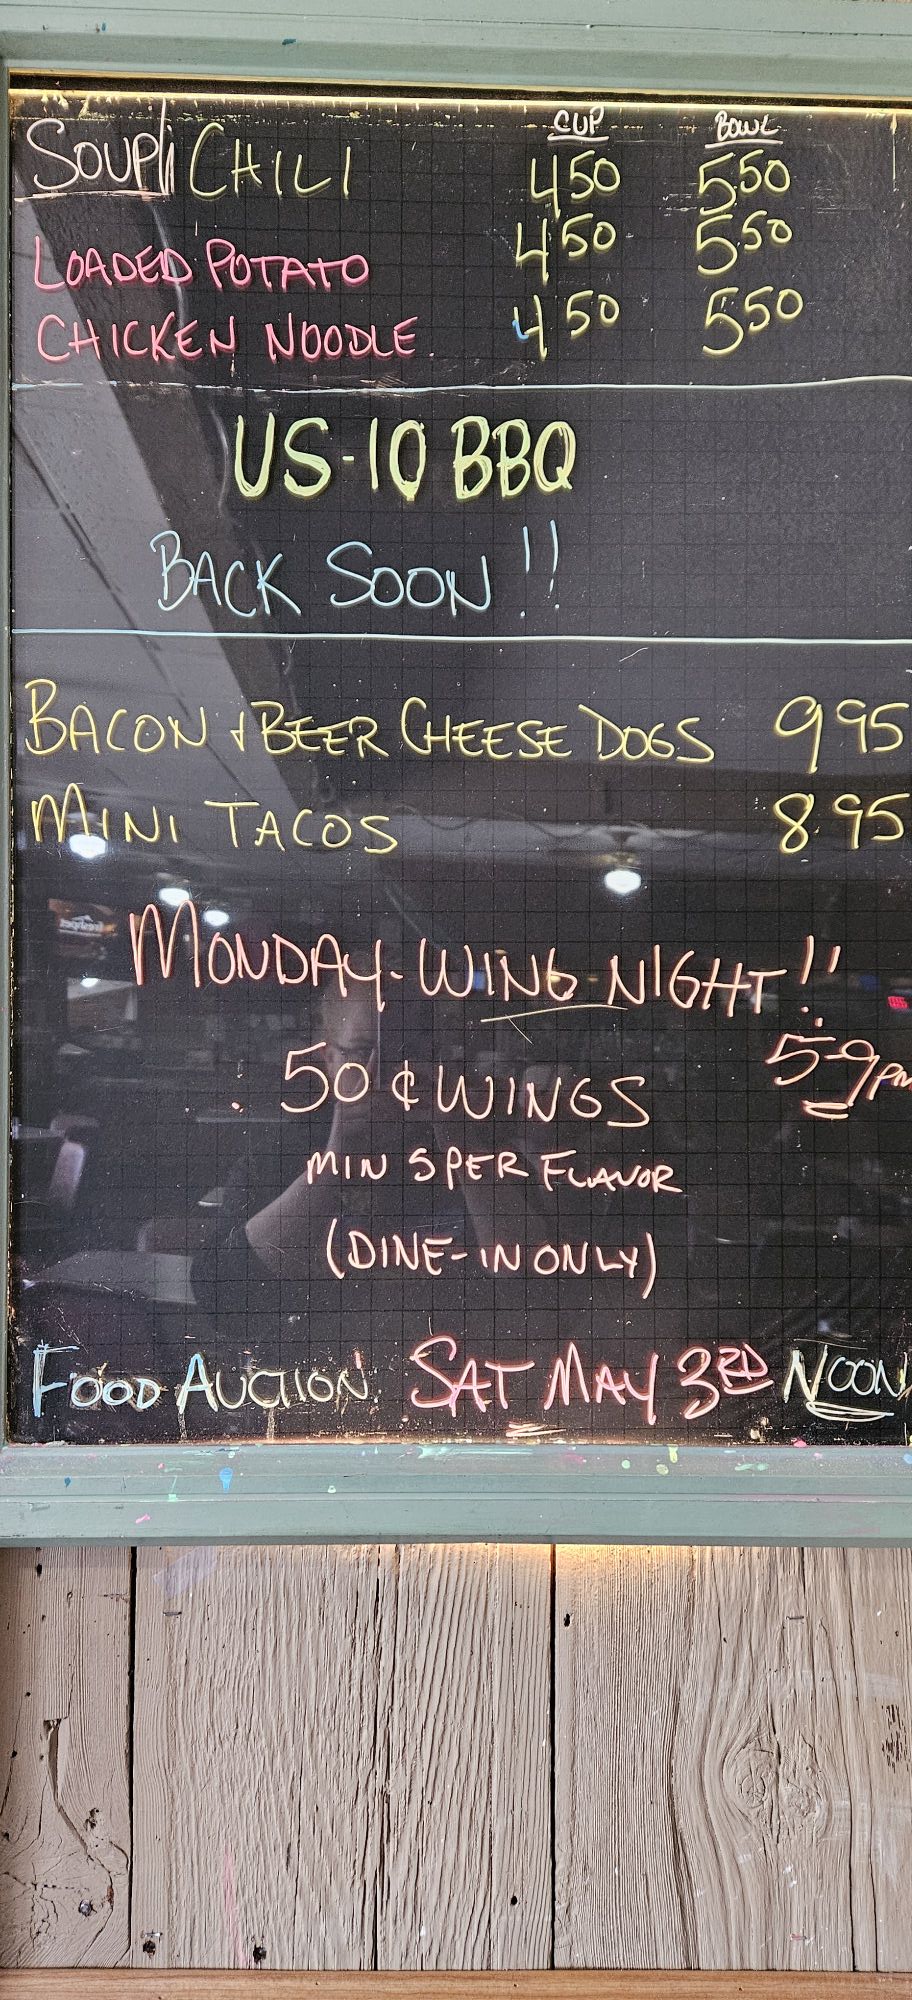 CUP BOWL
SOUP CHILI 4.50 5.50
LOADED POTATO 4.50 5.50
CHICKEN NOODLE 4.50 5.50
US-10 BBQ
BACK SOON!!
BACON & BEER CHEESE DOGS 9.95
MINI TACOS 8.95
MONDAY-WING NIGHT!!
5-9PM
50¢ WINGS
MIN 5 PER FLAVOR
(DINE-IN ONLY)
FOOD AUCTION SAT MAY 3RD NOON